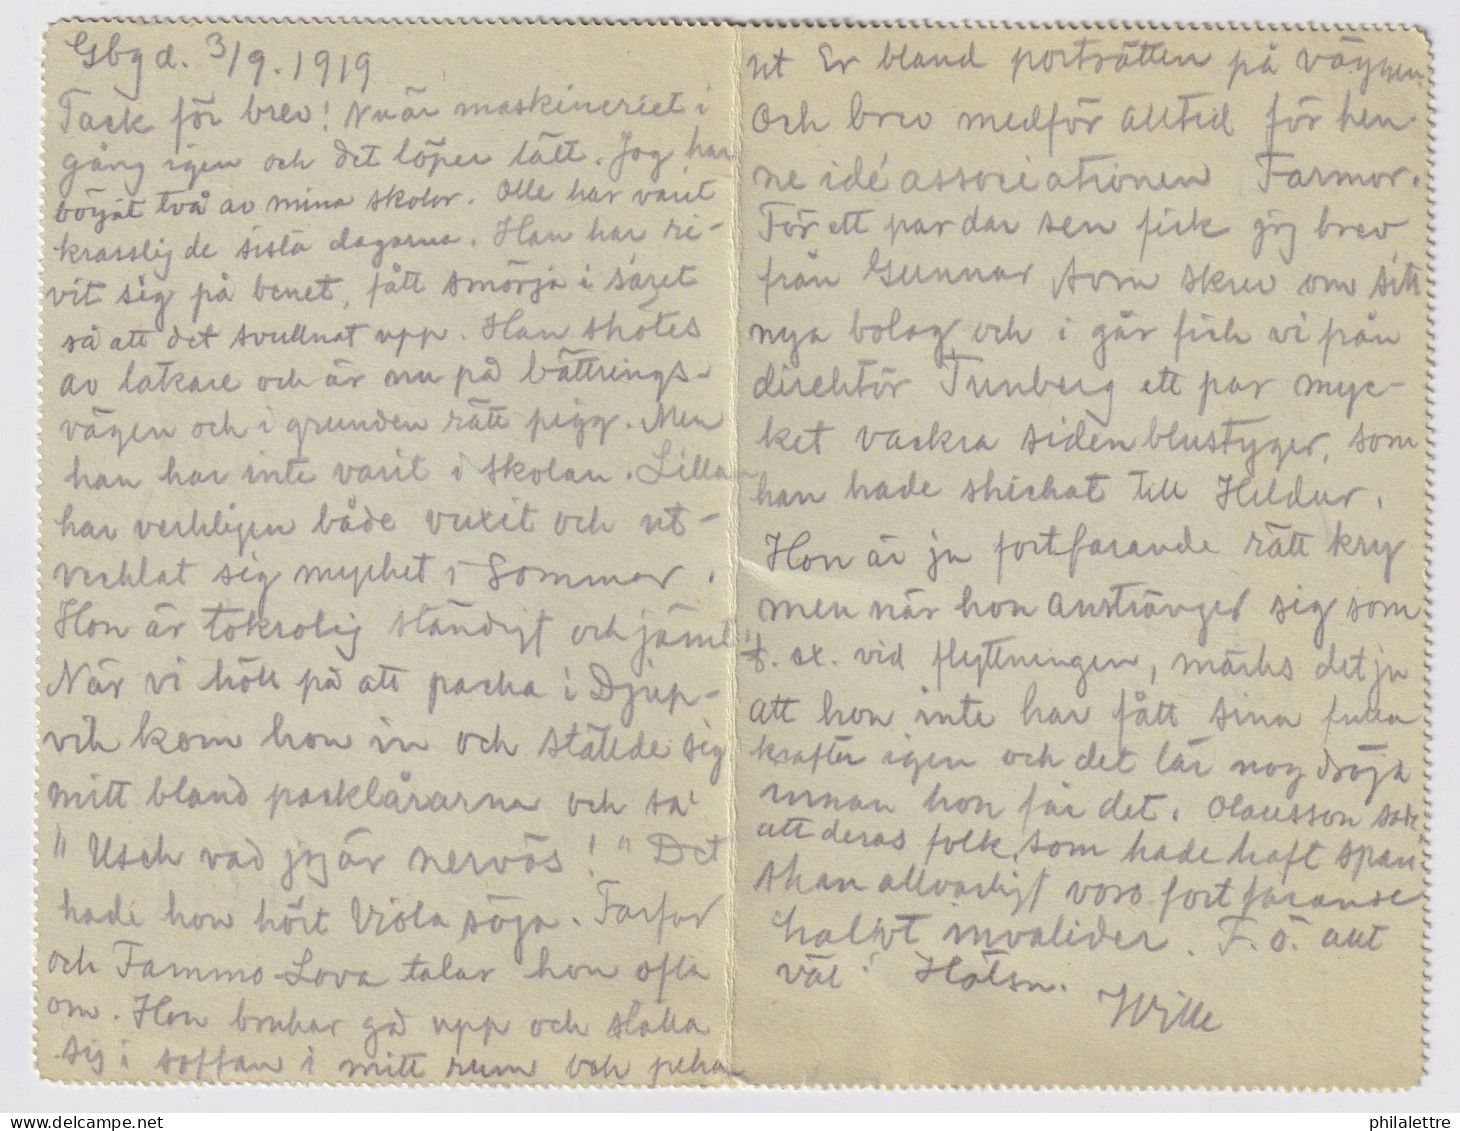 Gbg d. 3/9. 1919
Tack för brev! Nu är maskineriet i
gång igen och det löper lätt. Jag har
börjat två av mina skolor. Olle har varit
krasslig de sista dagarna. Han har ri-
vit sig på benet, fått smörja i såret
så att det svullnat upp. Han skötes
av läkare och är nu på bättrings-
vägen och i grunden rätt pigg. Men
han har inte varit i skolan. Lillan
har verkligen både vuxit och ut-
vecklat sig mycket i sommar.
Hon är tokrolig ständigt och jämt
När vi höll på att packa i Djup-
vik kom hon in och ställde sig
mitt bland packlårarna och sa'
"Usch vad jag är nervös!" Det
hade hon hört Viola säga. Farfar
och Fammo-Lova talar hon ofta
om. Hon brukar gå upp och ställa
sig i soffan i mitt rum och peka
ut Er bland porträtten på väggen.
Och brev medför alltid för hen-
ne idéassociationen Farmor.
För ett par dar sen fick jag brev
från Gunnar som skrev om sitt
nya bolag och i går fick vi från
direktör Tunberg ett par myc-
ket vackra sidenblustyger, som
han hade skickat till Hildur.
Hon är ju fortfarande rätt kry
men när hon anstränger sig som
t. ex. vid flyttningen, märks det ju
att hon inte har fått sina fulla
krafter igen och det lär nog dröja
innan hon får det. Olausson sade
att deras folk, som hade haft span
skan allvarligt voro fortfarande
halvt invalider. F. ö. allt
väl! Hälsn.
Wille
philalettre